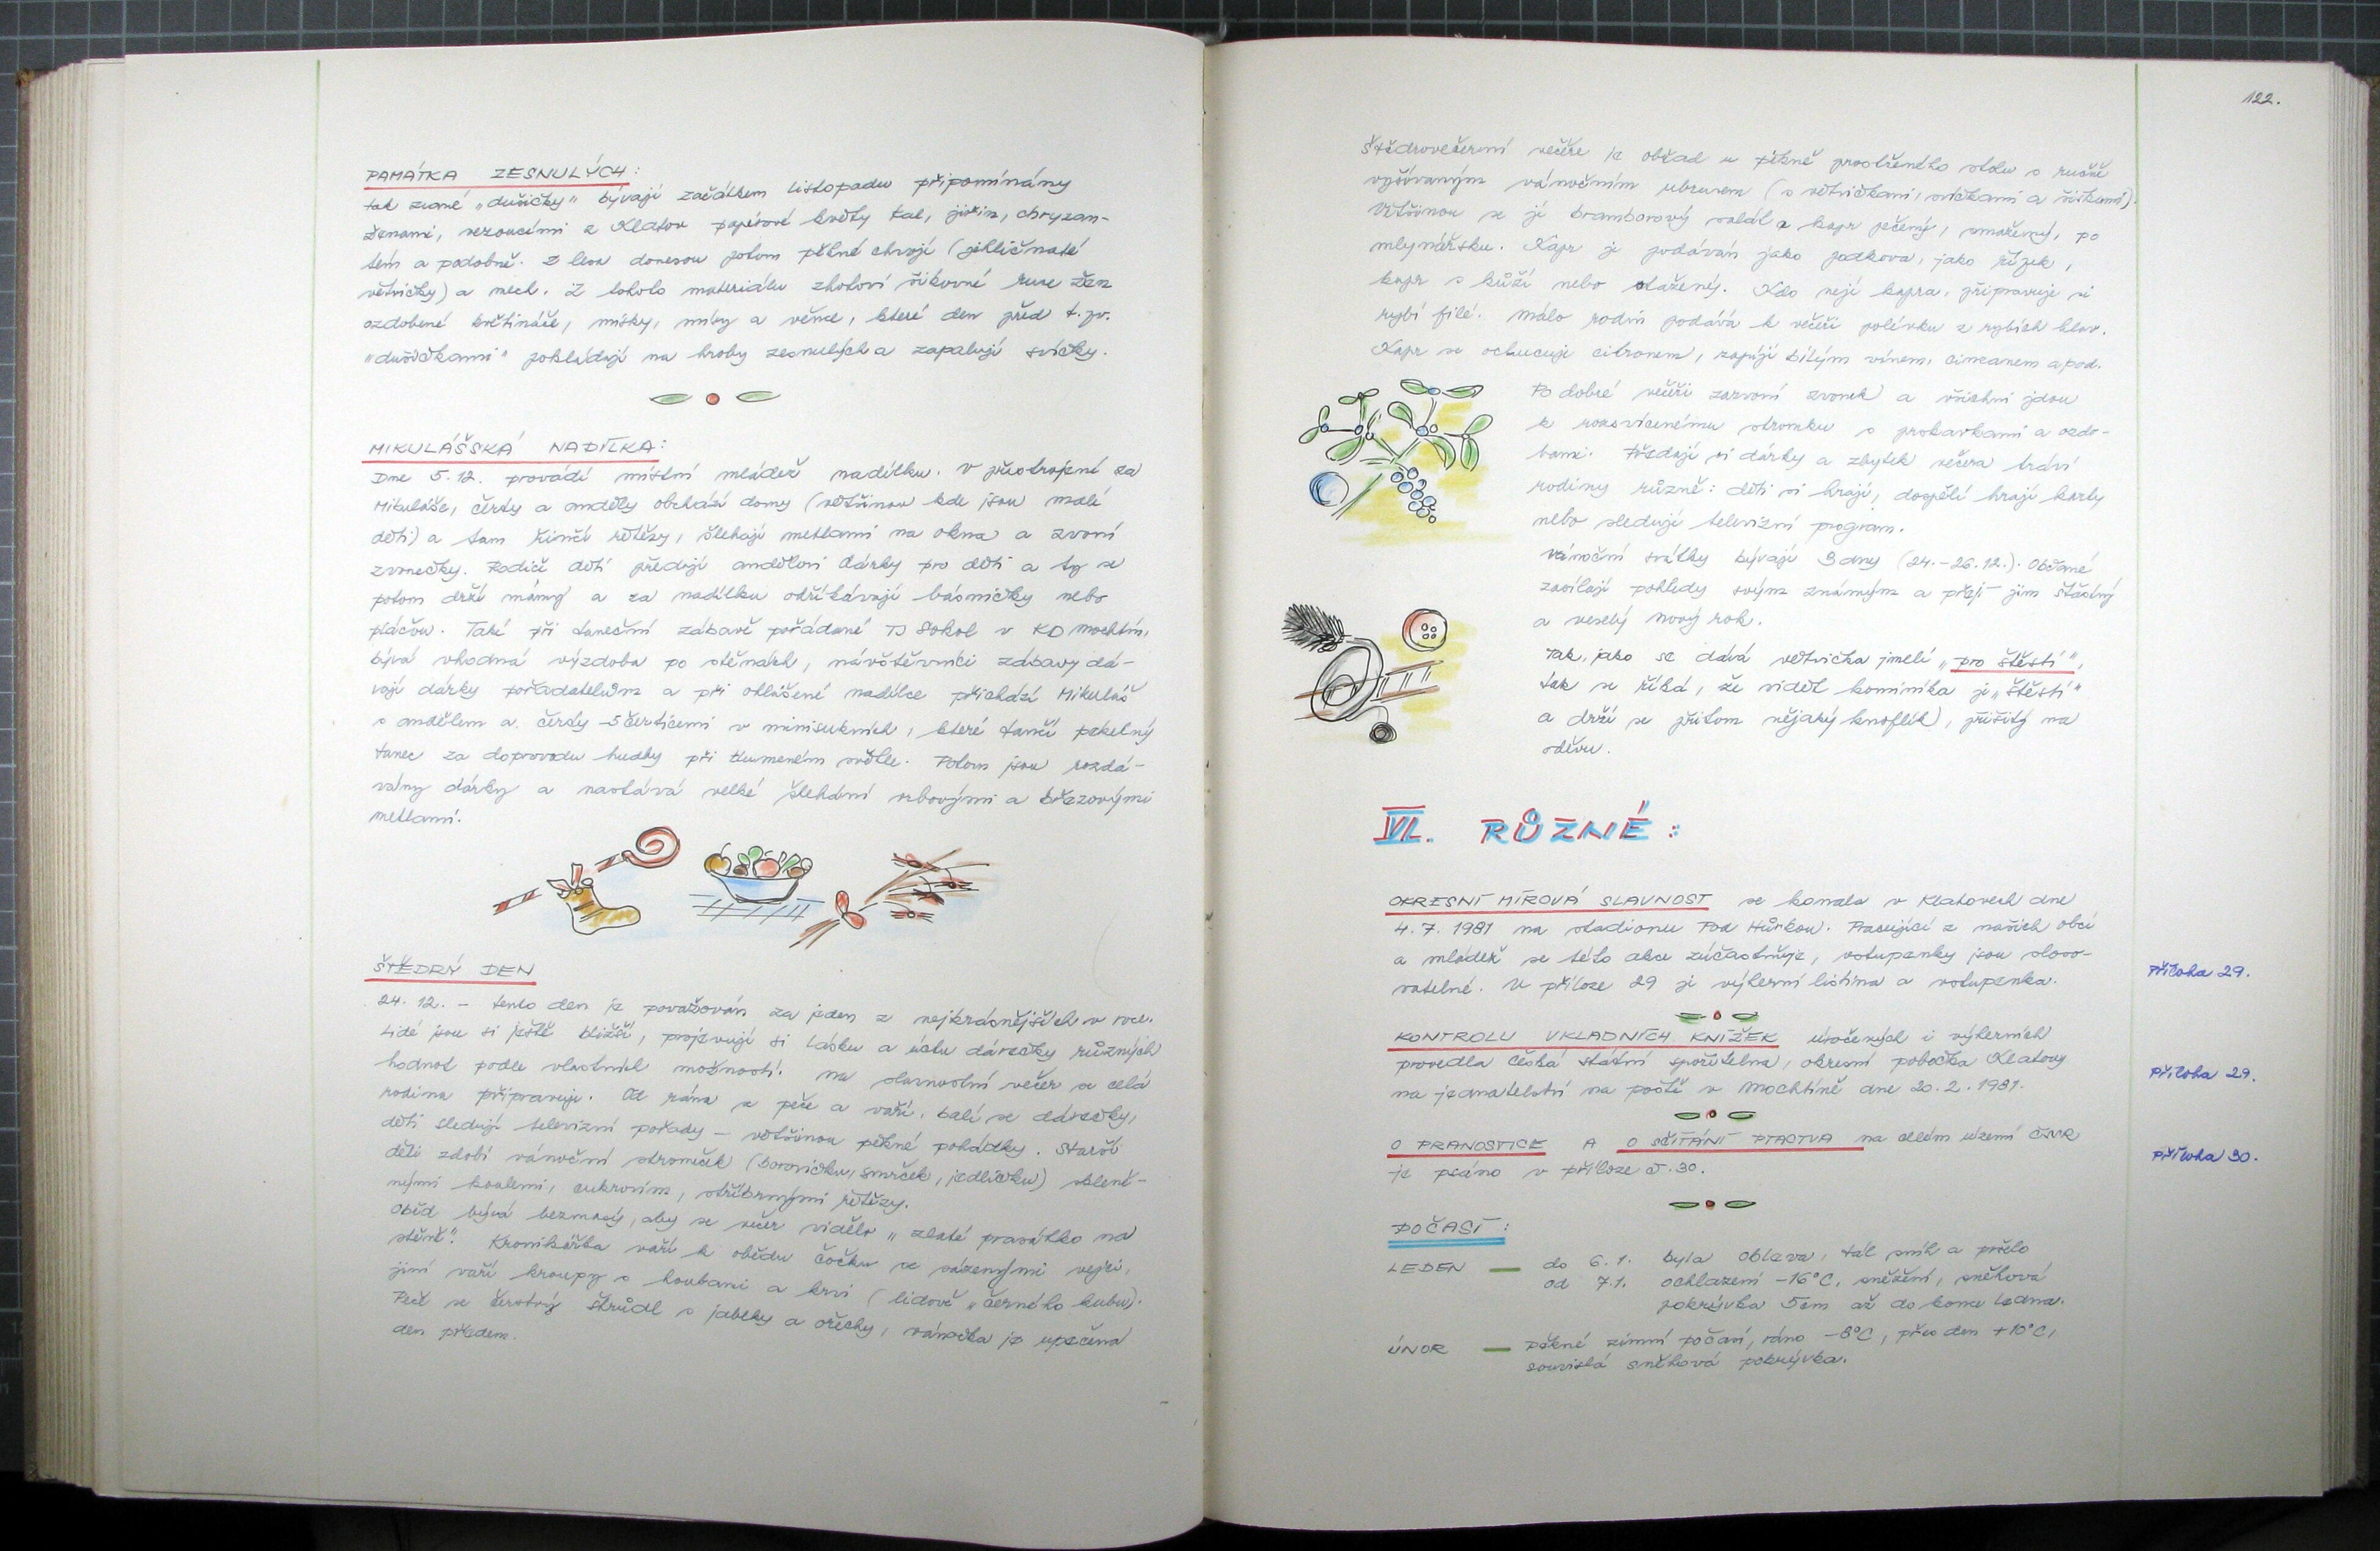 PAMÁTKA ZESNULÝCH:
tak zvané „dušičky" bývají začátkem listopadu připomínány
ženami, vezoucími z Klatov papírové květy kal, jiřin, chryzan-
tém a podobně. Z lesa donesou potom pěkné chvojí (jehličnaté
větvičky) a mech. Z tohoto materiálu zhotoví šikovné ruce žen
ozdobené květináče, misky, mísy a věnce, které den před t.zv.
„dušičkami" pokládají na hroby zesnulých a zapalují svíčky.
MIKULÁŠSKÁ NADÍLKA:
Dne 5.12. provádí místní mládež nadílku. V přestrojení za
Mikuláše, čerty a anděly obchází domy (většinou kde jsou malé
děti) a tam řinčí řetězy, šlehají metlami na okna a zvoní
zvonečky. Rodiče dětí předají andělovi dárky pro děti a ty se
potom drží mámy a za nadílku odříkávají básničky nebo
pláčou. Také při taneční zábavě pořádané TJ Sokol v KD Mochtín,
bývá vhodná výzdoba po stěnách, návštěvníci zábavy dá-
vají dárky pořadatelům a při ohlášené nadílce přichází Mikuláš
s andělem a čerty – 5 čerticemi v minisukních, které tančí pekelný
tanec za doprovodu hudby při tlumeném světle. Potom jsou rozdá-
vány dárky a nastává velké šlehání vrbovými a březovými
metlami.
ŠTĚDRÝ DEN
24. 12. – tento den je považován za jeden z nejkrásnějších v roce.
Lidé jsou si ještě bližší, projevují si lásku a úctu dárečky různých
hodnot podle vlastních možností. Na slavnostní večer se celá
rodina připravuje. Od rána se peče a vaří, balí se dárečky,
děti sledují televizní pořady – většinou pěkné pohádky. Starší
děti zdobí vánoční stromeček (borovičku, smrček, jedličku) skleně-
nými koulemi, cukrovím, stříbrnými řetězy.
Oběd bývá bezmasý, aby se večer vidělo „zlaté prasátko na
stěně". Kronikářka vaří k obědu čočku se sázenými vejci,
jiní vaří kroupy s houbami a krví (lidově „černého kubu).
Peče se čerstvý štrůdl s jablky a ořechy, vánočka je upečena
den předem.
122.
Štědrovečerní večeře je obřad u pěkně prostřeného stolu s ručně
vyšívaným vánočním ubrusem (s větvičkami, svíčkami a šiškami).
Většinou se jí bramborový salát a kapr pečený, smažený, po
mlynářsku. Kapr je podáván jako podkova, jako řízek,
kapr s kůží nebo stažený. Kdo nejí kapra, připravuje si
rybí filé. Málo rodin podává k večeři polévku z rybích hlav.
Kapr se ochucuje citronem, zapíjí bílým vínem, cinzanem a pod.
Po dobré večeři zazvoní zvonek a všichni jdou
k rozsvícenému stromku s prskavkami a ozdo-
bami. Předají si dárky a zbytek večera tráví
rodiny různě: děti si hrají, dospělí hrají karty,
nebo sledují televizní program.
Vánoční svátky bývají 3 dny (24.–26.12.). Občané
zasílají pohledy svým známým a přejí jim šťastný
a veselý nový rok.
Tak, jako se dává větvička jmelí „pro štěstí",
tak se říká, že vidět kominíka je „štěstí"
a drží se přitom nějaký knoflík, přišitý na
oděvu.
VI. RŮZNÉ:
OKRESNÍ MÍROVÁ SLAVNOST se konala v Klatovech dne
4. 7. 1981 na stadionu Pod Hůrkou. Pracující z našich obcí
a mládež se této akce zúčastňuje, vstupenky jsou sloso-
vatelné. V příloze 29 je výherní listina a vstupenka.
Příloha 29.
KONTROLU VKLADNÍCH KNÍŽEK úročených i výherních
provedla Česká státní spořitelna, okresní pobočka Klatovy
na jednatelství na poště v Mochtíně dne 20. 2. 1981.
Příloha 29.
O PRANOSTICE A O SČÍTÁNÍ PTACTVA na celém území ČSSR
je psáno v příloze č. 30.
Příloha 30.
POČASÍ:
LEDEN – do 6. 1. byla obleva, tál sníh a pršelo
od 7.1. ochlazení -16°C, sněžení, sněhová
pokrývka 5cm až do konce ledna.
ÚNOR – Pěkné zimní počasí, ráno -8°C, přes den +10°C,
souvislá sněhová pokrývka.